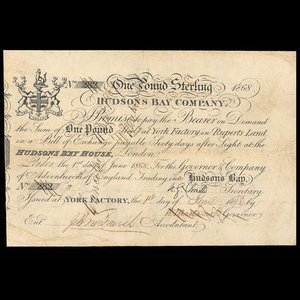 No 222 One Pound Sterling 1868
HUDSONS BAY COMPANY.
Promise to pay the Bearer on Demand
the Sum of One Pound at York Factory in Ruperts Land
in a Bill of Exchange payable Sixty days after Sight at the
HUDSONS BAY HOUSE, London.
1st day June 1868 For the Governor & Company
of Adventurers of England Trading into Hudsons Bay.
No 222 Smith Secretary
Issued at YORK FACTORY, the 1st day of by
Governor
Ent. Accountant